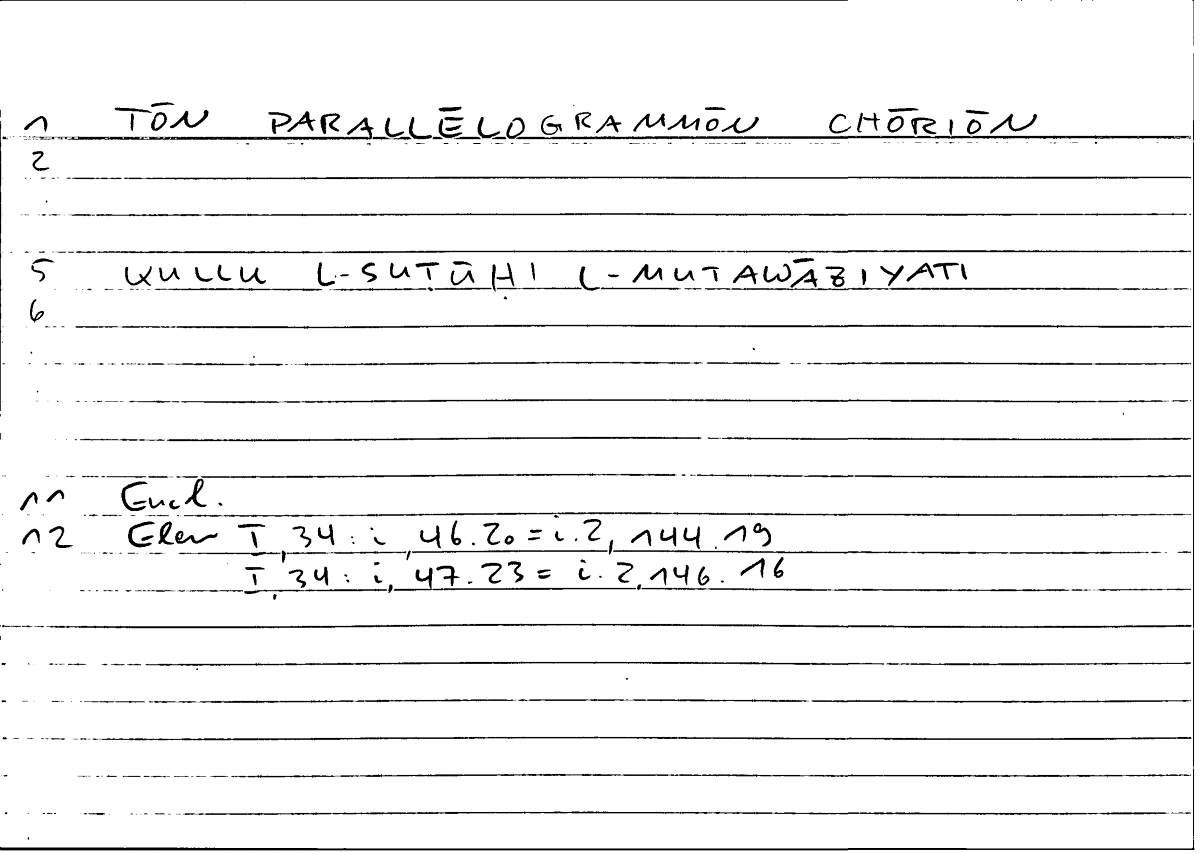 1 TŌN PARALLĒLOGRAMMŌN CHŌRIŌN
2
5 KULLU L-SUṬŪḤI L-MUTAWĀZIYATI
6
11 Eucl.
12 Elem I, 34 : i, 46.20 = i.2, 144.19
I, 34 : i, 47.23 = i.2, 146.16